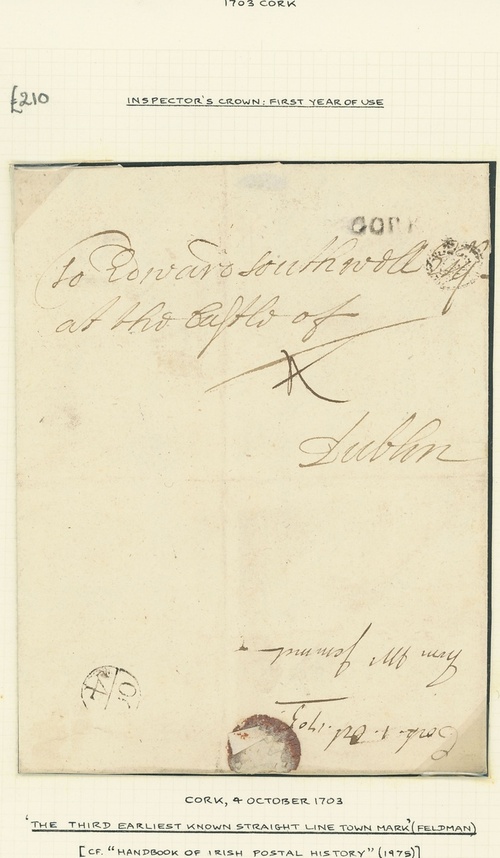 1703 CORK
£210
INSPECTOR'S CROWN: FIRST YEAR OF USE
CORK
To Edward Southwell Esq
at the Castle of
Dublin
from Mr
Cork 1. Oct. 1703
CORK, 4 OCTOBER 1703
'THE THIRD EARLIEST KNOWN STRAIGHT LINE TOWN MARK' (FELDMAN)
[CF. "HANDBOOK OF IRISH POSTAL HISTORY" (1975)]